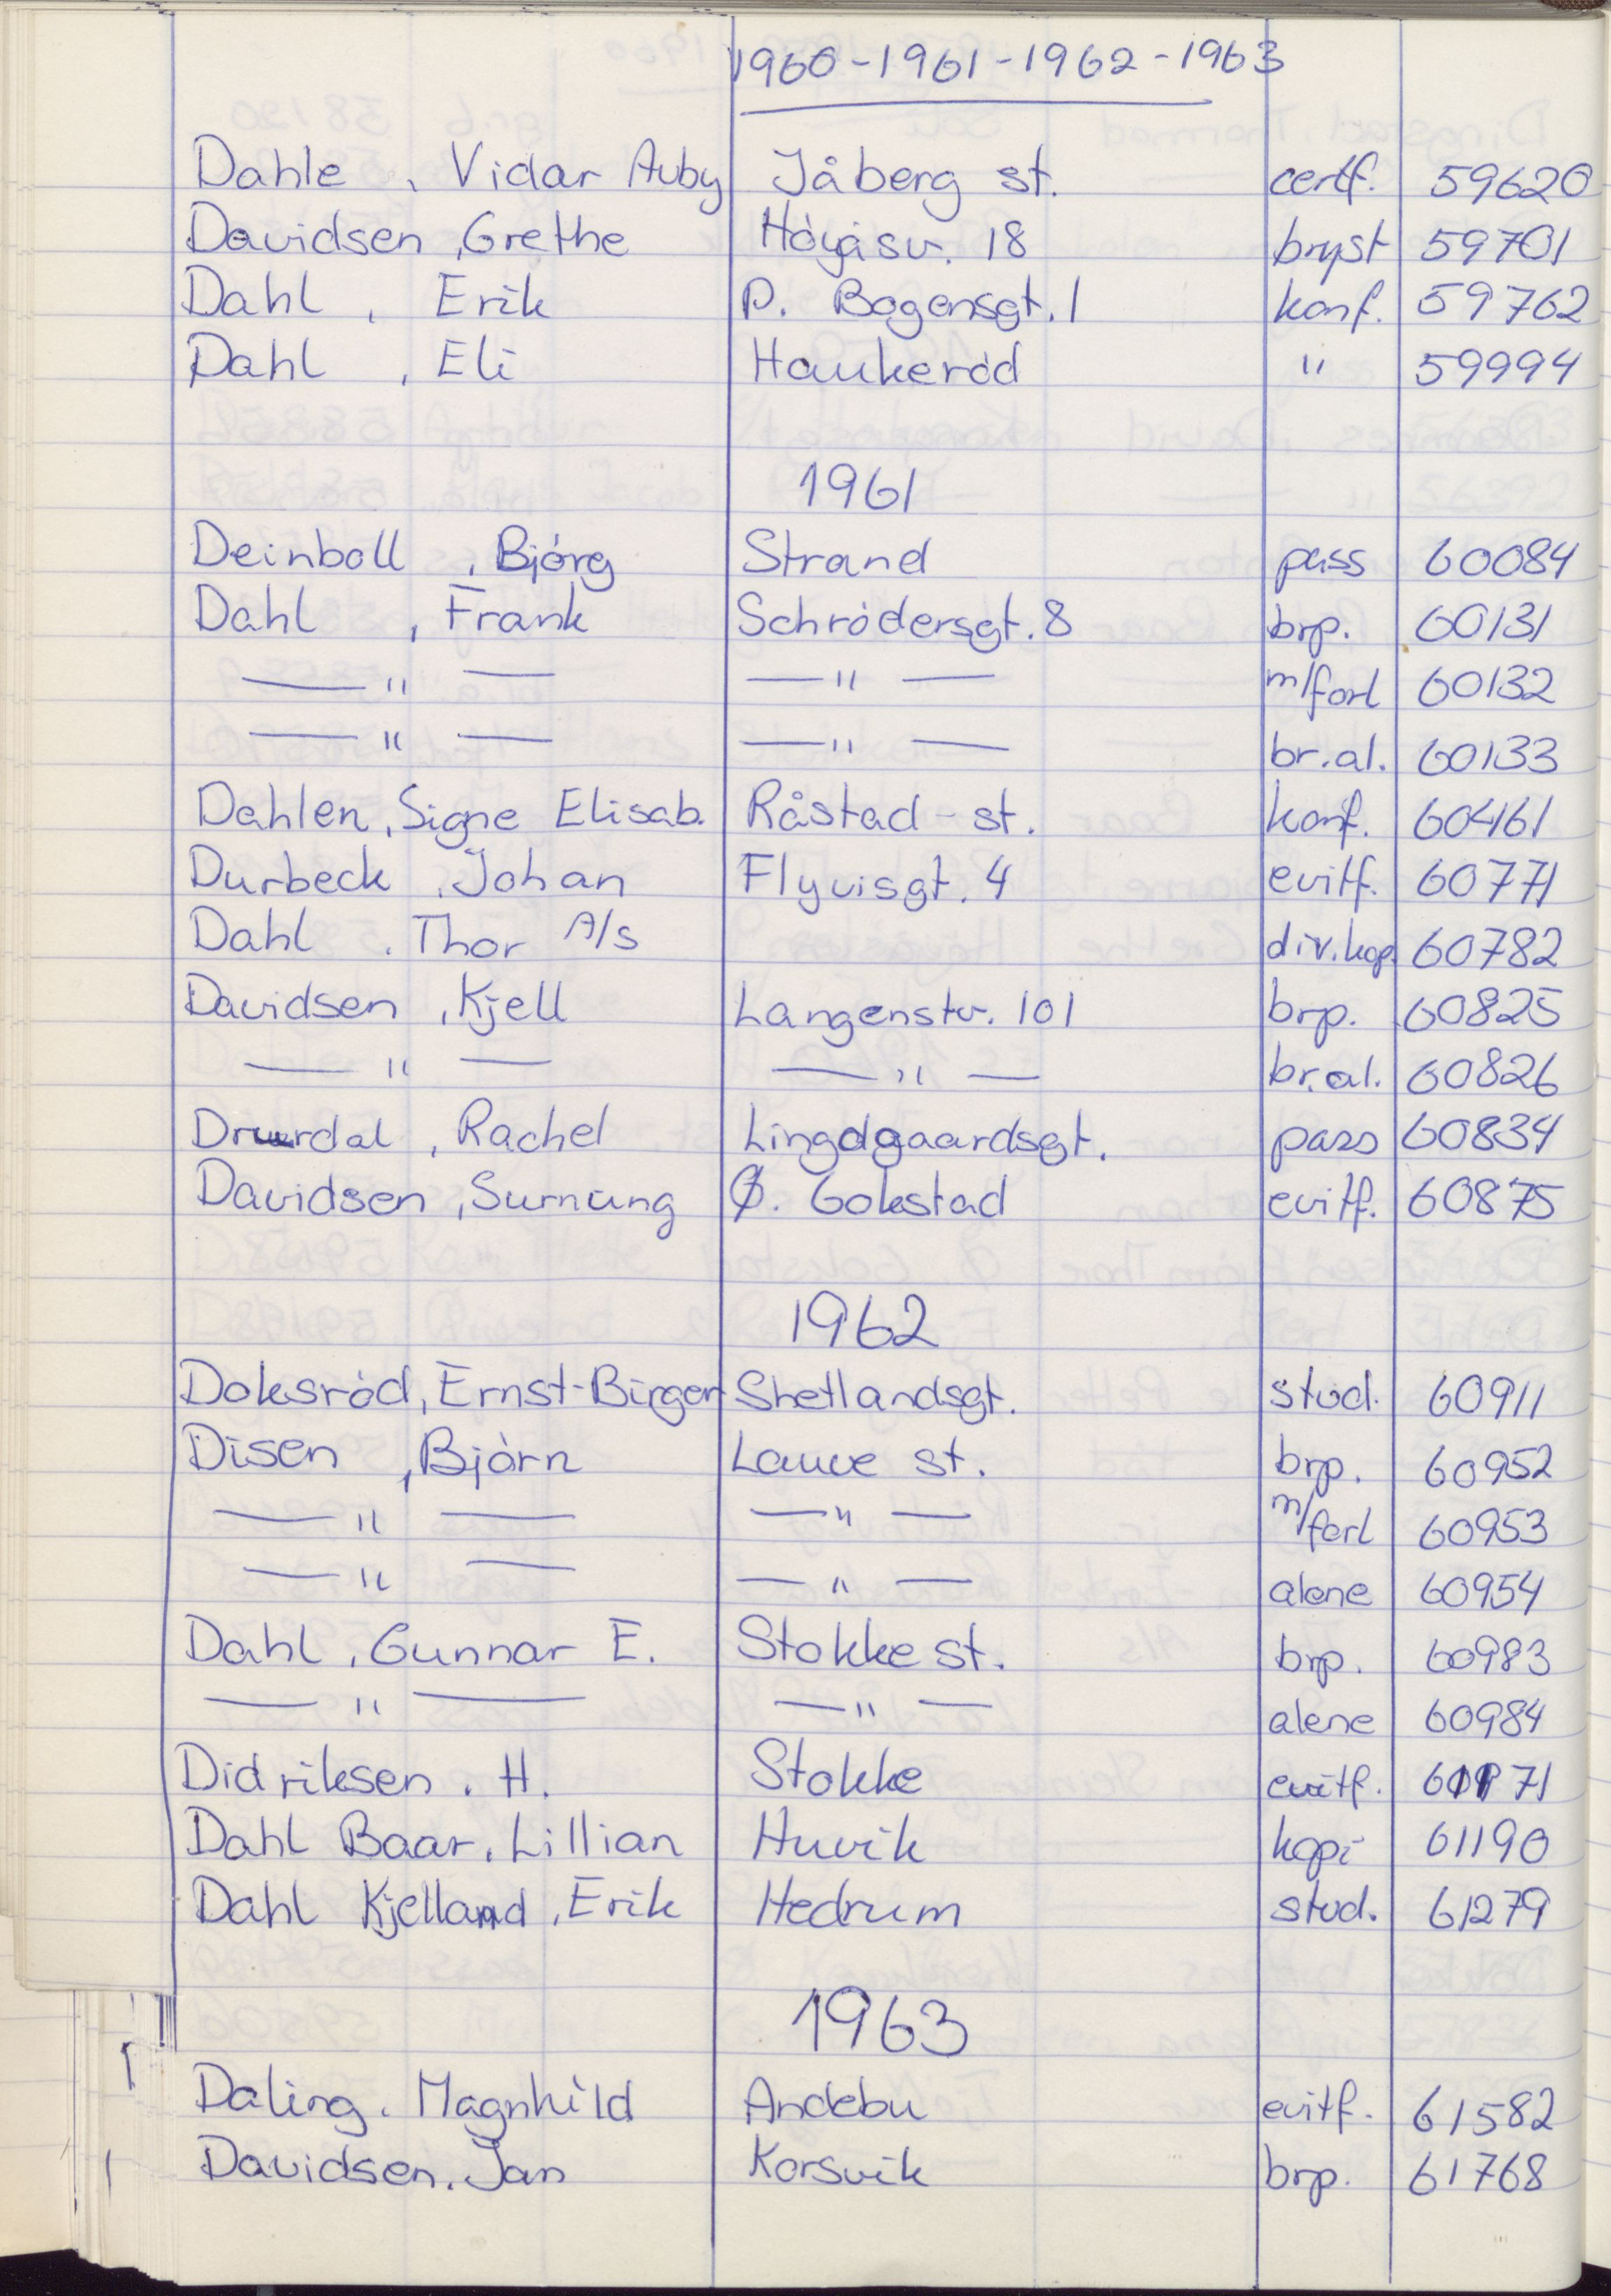 1960-1961-1962-1963
Dahle, Vidar Auby Jåberg st. certf. 59620
Davidsen, Grethe Höyåsv. 18 bryst 59701
Dahl, Erik P. Bogensgt. 1 konf. 59762
Dahl, Eli Haukeröd " 59994
1961
Deinboll, Bjórg Strand pass 60084
Dahl, Frank Schródersgt. 8 brp. 60131
—"— —"— m/forl 60132
—"— —"— br.al. 60133
Dahlen, Signe Elisab. Råstad-st. konf. 60461
Durbeck, Johan Flyvisgt. 4 evitf. 60771
Dahl, Thor A/s div.kop. 60782
Davidsen, Kjell Langenstv. 101 brp. 60825
—"— —"— br.al. 60826
Rachel Lingdgaardsgt. pass 60834
Davidsen, Ø. Gokstad evitf. 60875
1962
Doksród, Ernst-Birger Shetlandsgt. stud. 60911
Disen, Bjórn Lauve st. brp. 60952
—"— —"— m/forl 60953
—"— —"— alene 60954
Dahl, Gunnar E. Stokke st. brp. 60983
—"— —"— alene 60984
Didriksen. H. Stokke evitf.
Dahl Baar, Lillian Huvik kopi 61190
Dahl Kjelland, Erik Hedrum stud. 61279
1963
Daling. Magnhild Andebu evitf. 61582
Davidsen. Jan Korsvik brp. 61768